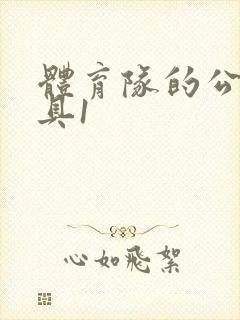 體育隊的公
具1
心如飛絮